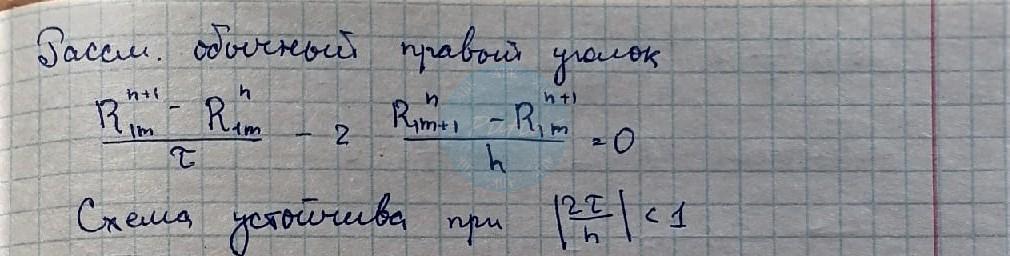 Рассм. обычный правой уголок
\frac{R_{1m}^{n+1} - R_{1m}^{n}}{\tau} - 2 \frac{R_{1m+1}^{n} - R_{1m}^{n+1}}{h} = 0
Схема устойчива при |\frac{2\tau}{h}| < 1